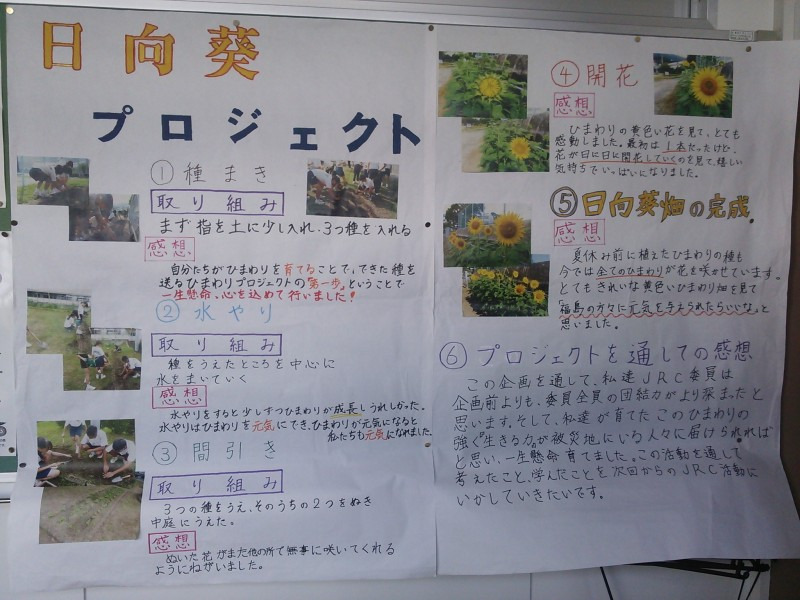 日向葵
プロジェクト
① 種まき
取り組み
まず指を土に少し入れ、3つ種を入れる
感想
自分たちがひまわりを育てることで、できた種を
送るひまわりプロジェクトの"第一歩"ということで
一生懸命、心を込めて行いました!
② 水やり
取り組み
種をうえたところを中心に
水をまいていく
感想
水やりをすると少しずつひまわりが成長しうれしかった。
水やりはひまわりを元気にでき、ひまわりが元気になると
私たちも元気になれました。
③ 間引き
取り組み
3つの種をうえ、そのうちの2つをぬき
中庭にうえた。
感想
ぬいた花がまた他の所で無事に咲いてくれる
ようにねがいました。
④ 開花
感想
ひまわりの黄色い花を見て、とても
感動しました。最初は1本だったけど、
花が日に日に開花していくのを見て、嬉しい
気持ちでいっぱいになりました。
⑤ 日向葵畑の完成
感想
夏休み前に植えたひまわりの種も
今では全てのひまわりが花を咲かせています。
とてもきれいな黄色いひまわり畑を見て
「福島の方々に元気を与えられたらいいな」と
思いました。
⑥ プロジェクトを通しての感想
この企画を通して、私達JRC委員は
企画前よりも、委員全員の団結力がより深まったと
思います。そして、私達が育てたこのひまわりの
強く"生きる力"が被災地にいる人々に届けられれば
と思い、一生懸命育てました。この活動を通して
考えたこと、学んだことを次回からのJRC活動に
いかしていきたいです。